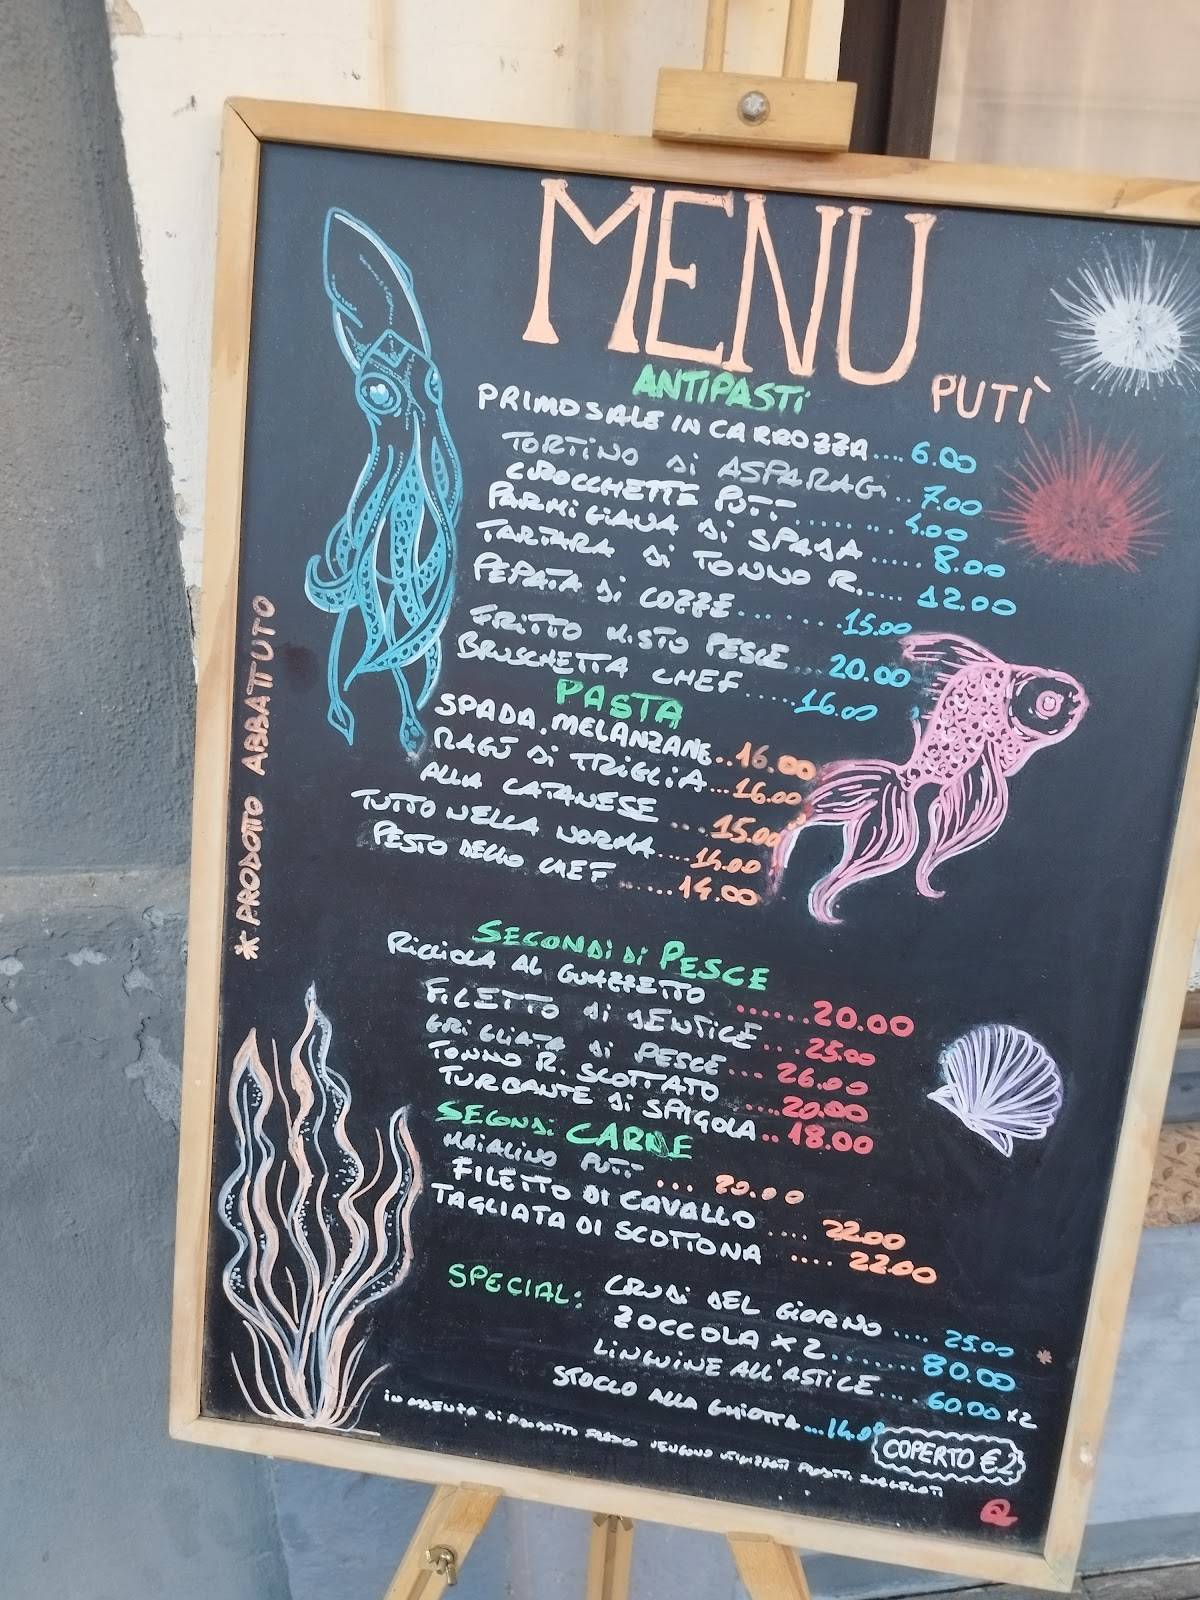 MENU
PUTÌ
ANTIPASTi
PRIMOSALE IN CARROZZA.... 6.00
TORTINO di ASPARAGI.. 7.00
CROCCHETTE PUTì ......... 4.00
PARMIGIANA di SPADA ...... 8.00
TARTARA di TONNO R..... 12.00
PEPATA di COZZE........ 15.00
FRITTO MISTO PESCE... 20.00
BRUSCHETTA CHEF ...... 16.00
PASTA
SPADA, MELANZANE.. 16.00
RAGÙ di TRIGLIA... 16.00
ALLA CATANESE ... 15.00
TUTTO NELLA NORMA.... 14.00
PESTO DELLO CHEF ...... 14.00
SECONDi di PESCE
RICCIOLA AL GUAZZETTO ...... 20.00
FILETTO di DENTICE ... 25.00
GRIGLIATA di PESCE... 26.00
TONNO R. SCOTTATO .... 20.00
TURBANTE di SPIGOLA.. 18.00
SECONDi CARNE
MAIALINO PUTì ... 20.00
FILETTO DI CAVALLO .... 22.00
TAGLIATA DI SCOTTONA .... 22.00
SPECIAL: CRUDi DEL GIORNO .... 25.00 *
ZOCCOLA X 2........ 80.00
LiNGUiNE ALL'ASTICE.... 60.00 x2
STOCCO ALLA GHIOTTA ...14.00
COPERTO €2
iN ASSENZA di PRODOTTO FRESCO VENGONO UTILIZZATI PRODOTTI SURGELATI
* PRODOTTO ABBATTUTO